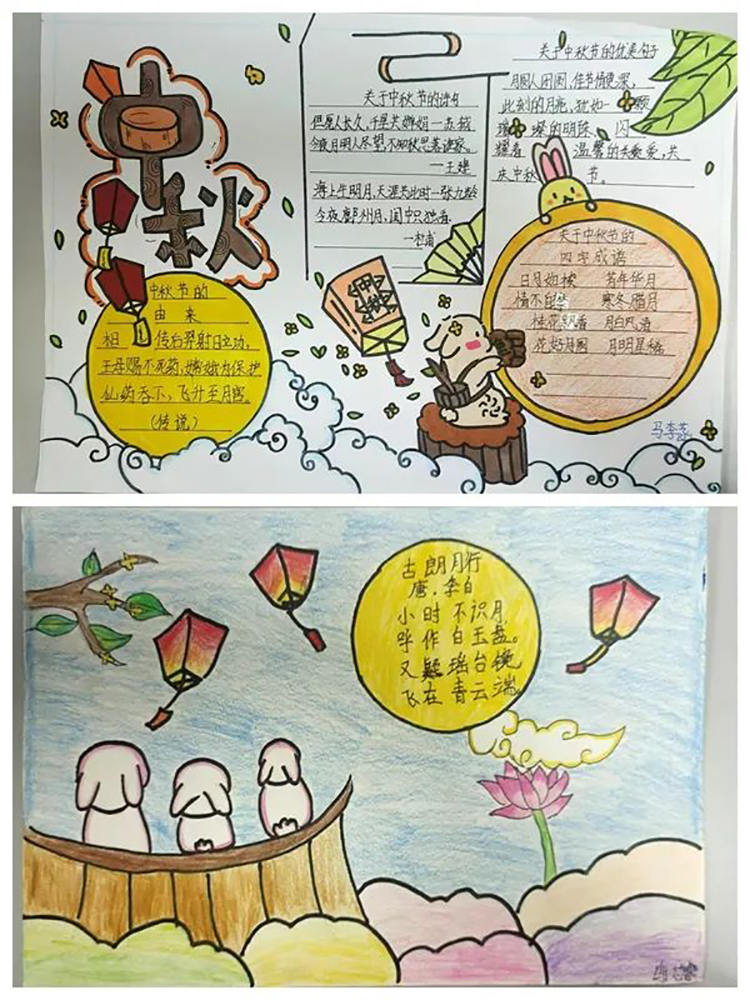 中秋
中秋节的
由来
相传后羿射日立功,
王母赐不死药,嫦娥为保护
仙药吞下,飞升至月宫
(传说)
关于中秋节的诗句
但愿人长久,千里共婵娟—苏轼
今夜月明人尽望,不知秋思落谁家。
—王建
海上生明月,天涯共此时—张九龄
今夜鄜州月,闺中只独看。
—杜甫
关于中秋节的优美句子
月圆人团圆,佳节情更深,
此刻的月亮,犹如一颗
璀璨的明珠,闪
耀着温馨的关爱,共
庆中秋节。
关于中秋节的
四字成语
日月如梭 若年华月
情不自禁 寒冬腊月
桂花飘香 月白风清
花好月圆 月明星稀
中秋
马李
古朗月行
唐.李白
小时不识月,
呼作白玉盘。
又疑瑶台镜,
飞在青云端。